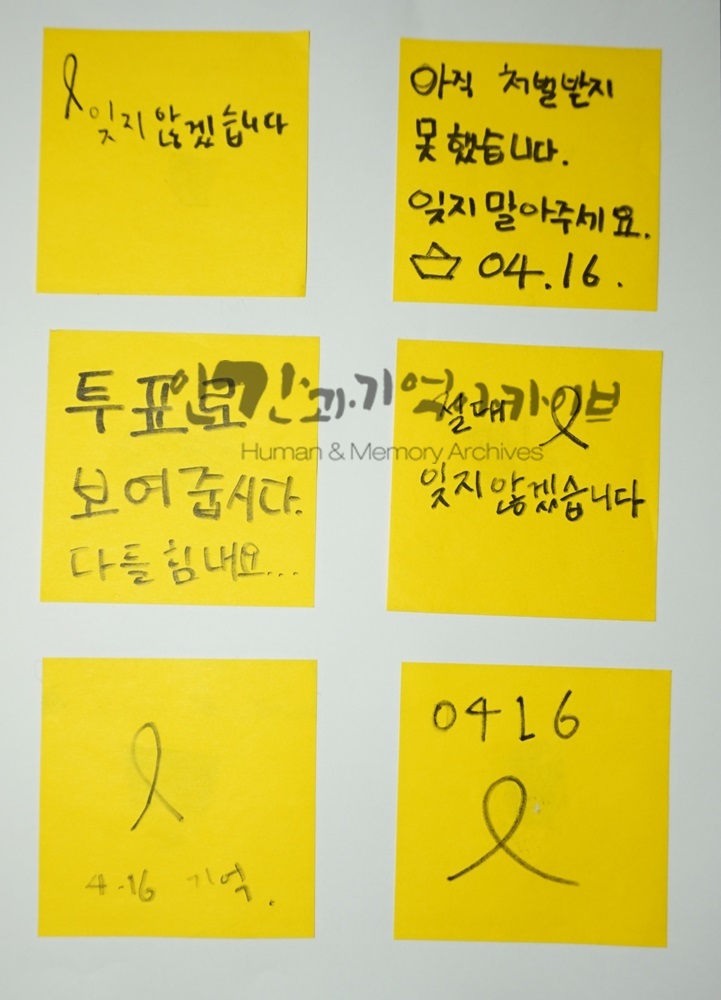 잊지 않겠습니다
아직 처벌받지
못했습니다.
잊지 말아주세요.
04.16.
투표로
보여줍시다.
다들 힘내요...
절대
잊지 않겠습니다
인간과 기억 아카이브
Human & Memory Archives
4.16 기억.
0416